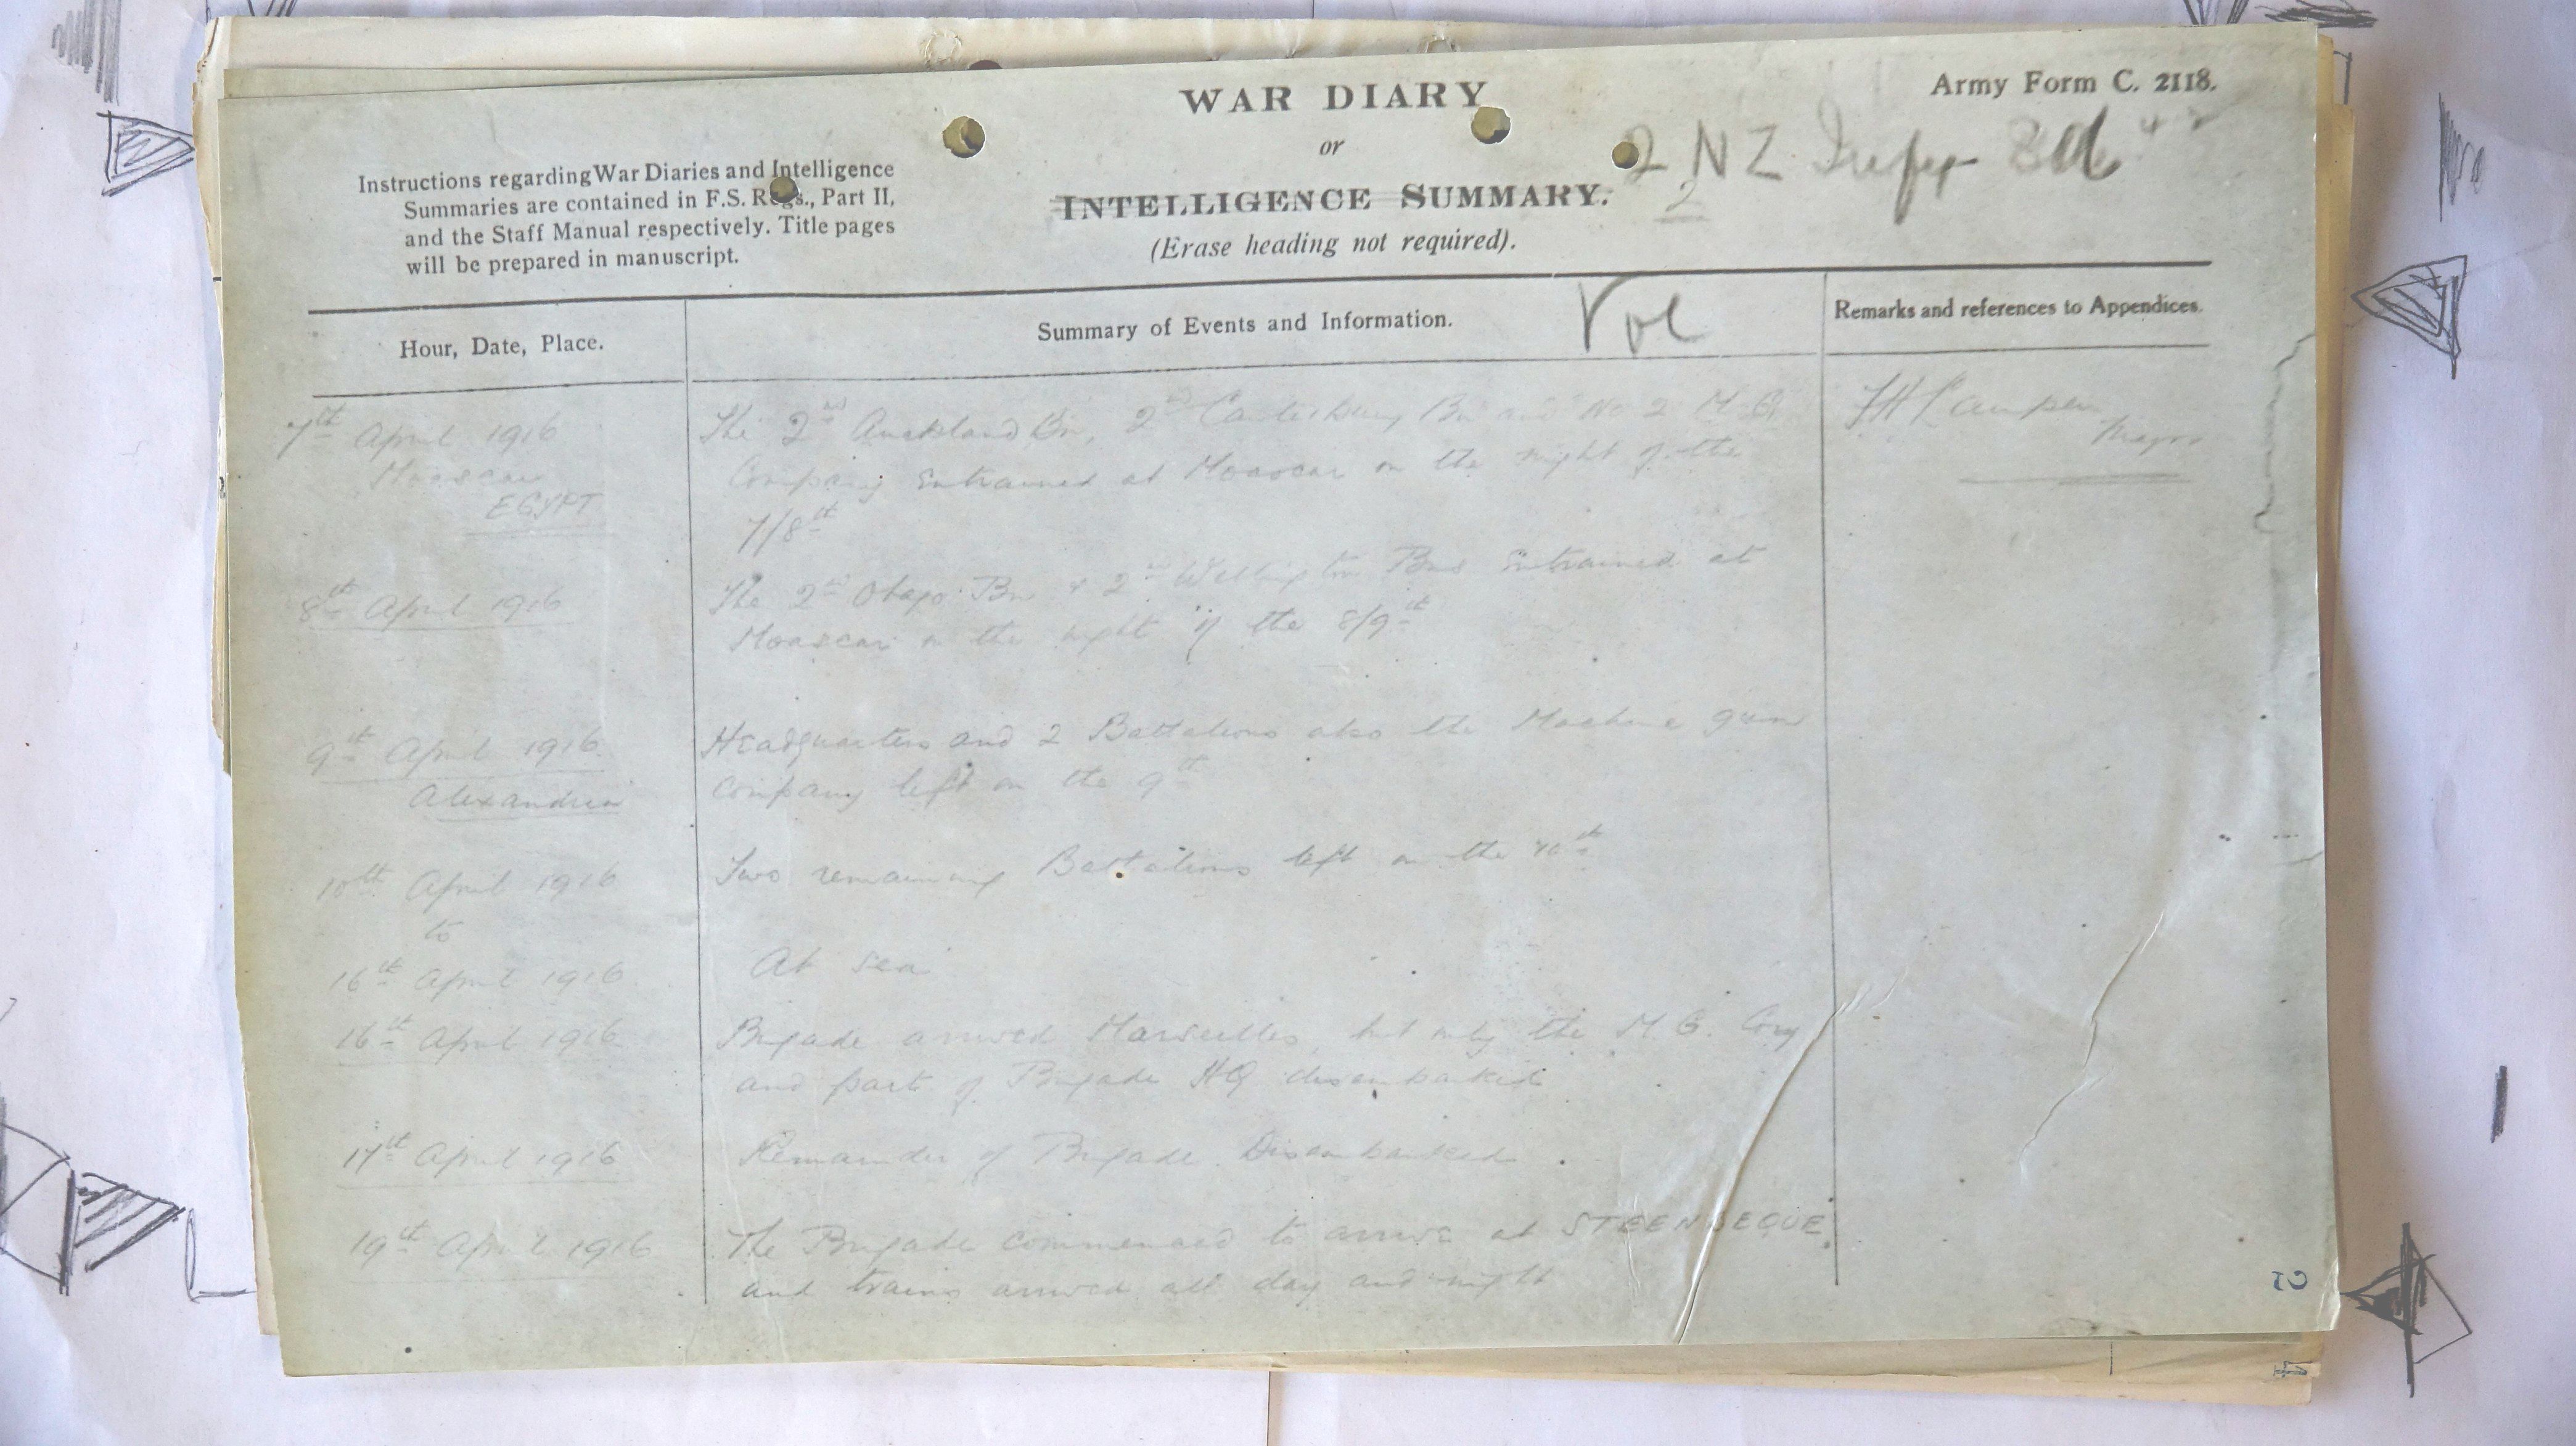 WAR DIARY
or
INTELLIGENCE SUMMARY.
(Erase heading not required).
Army Form C. 2118.
2 NZ
2
Instructions regarding War Diaries and Intelligence
Summaries are contained in F.S. Regs., Part II,
and the Staff Manual respectively. Title pages
will be prepared in manuscript.
Hour, Date, Place.
Summary of Events and Information.
Vol
Remarks and references to Appendices.
7th April 1916
Moascar
EGYPT
The 2nd Auckland Bn, 2nd Canterbury Bn and No 2 M.G.
Company entrained at Moascar on the night of the
7/8th
Major
8th April 1916
The 2nd Otago Bn & 2nd Wellington Bns entrained at
Moascar on the night of the 8/9th
9th April 1916
Alexandria
Headquarters and 2 Battalions also the Machine gun
company left on the 9th
10th April 1916
Two remaining Battalions left on the 10th
to
16th April 1916
At sea
16th April 1916
Brigade arrived Marseilles but only the M.G. Coy
and part of Brigade HQ disembarked
17th April 1916
Remainder of Brigade Disembarked.
19th April 1916
The Brigade commenced to arrive at STEENBEQUE
and trains arrived all day and night